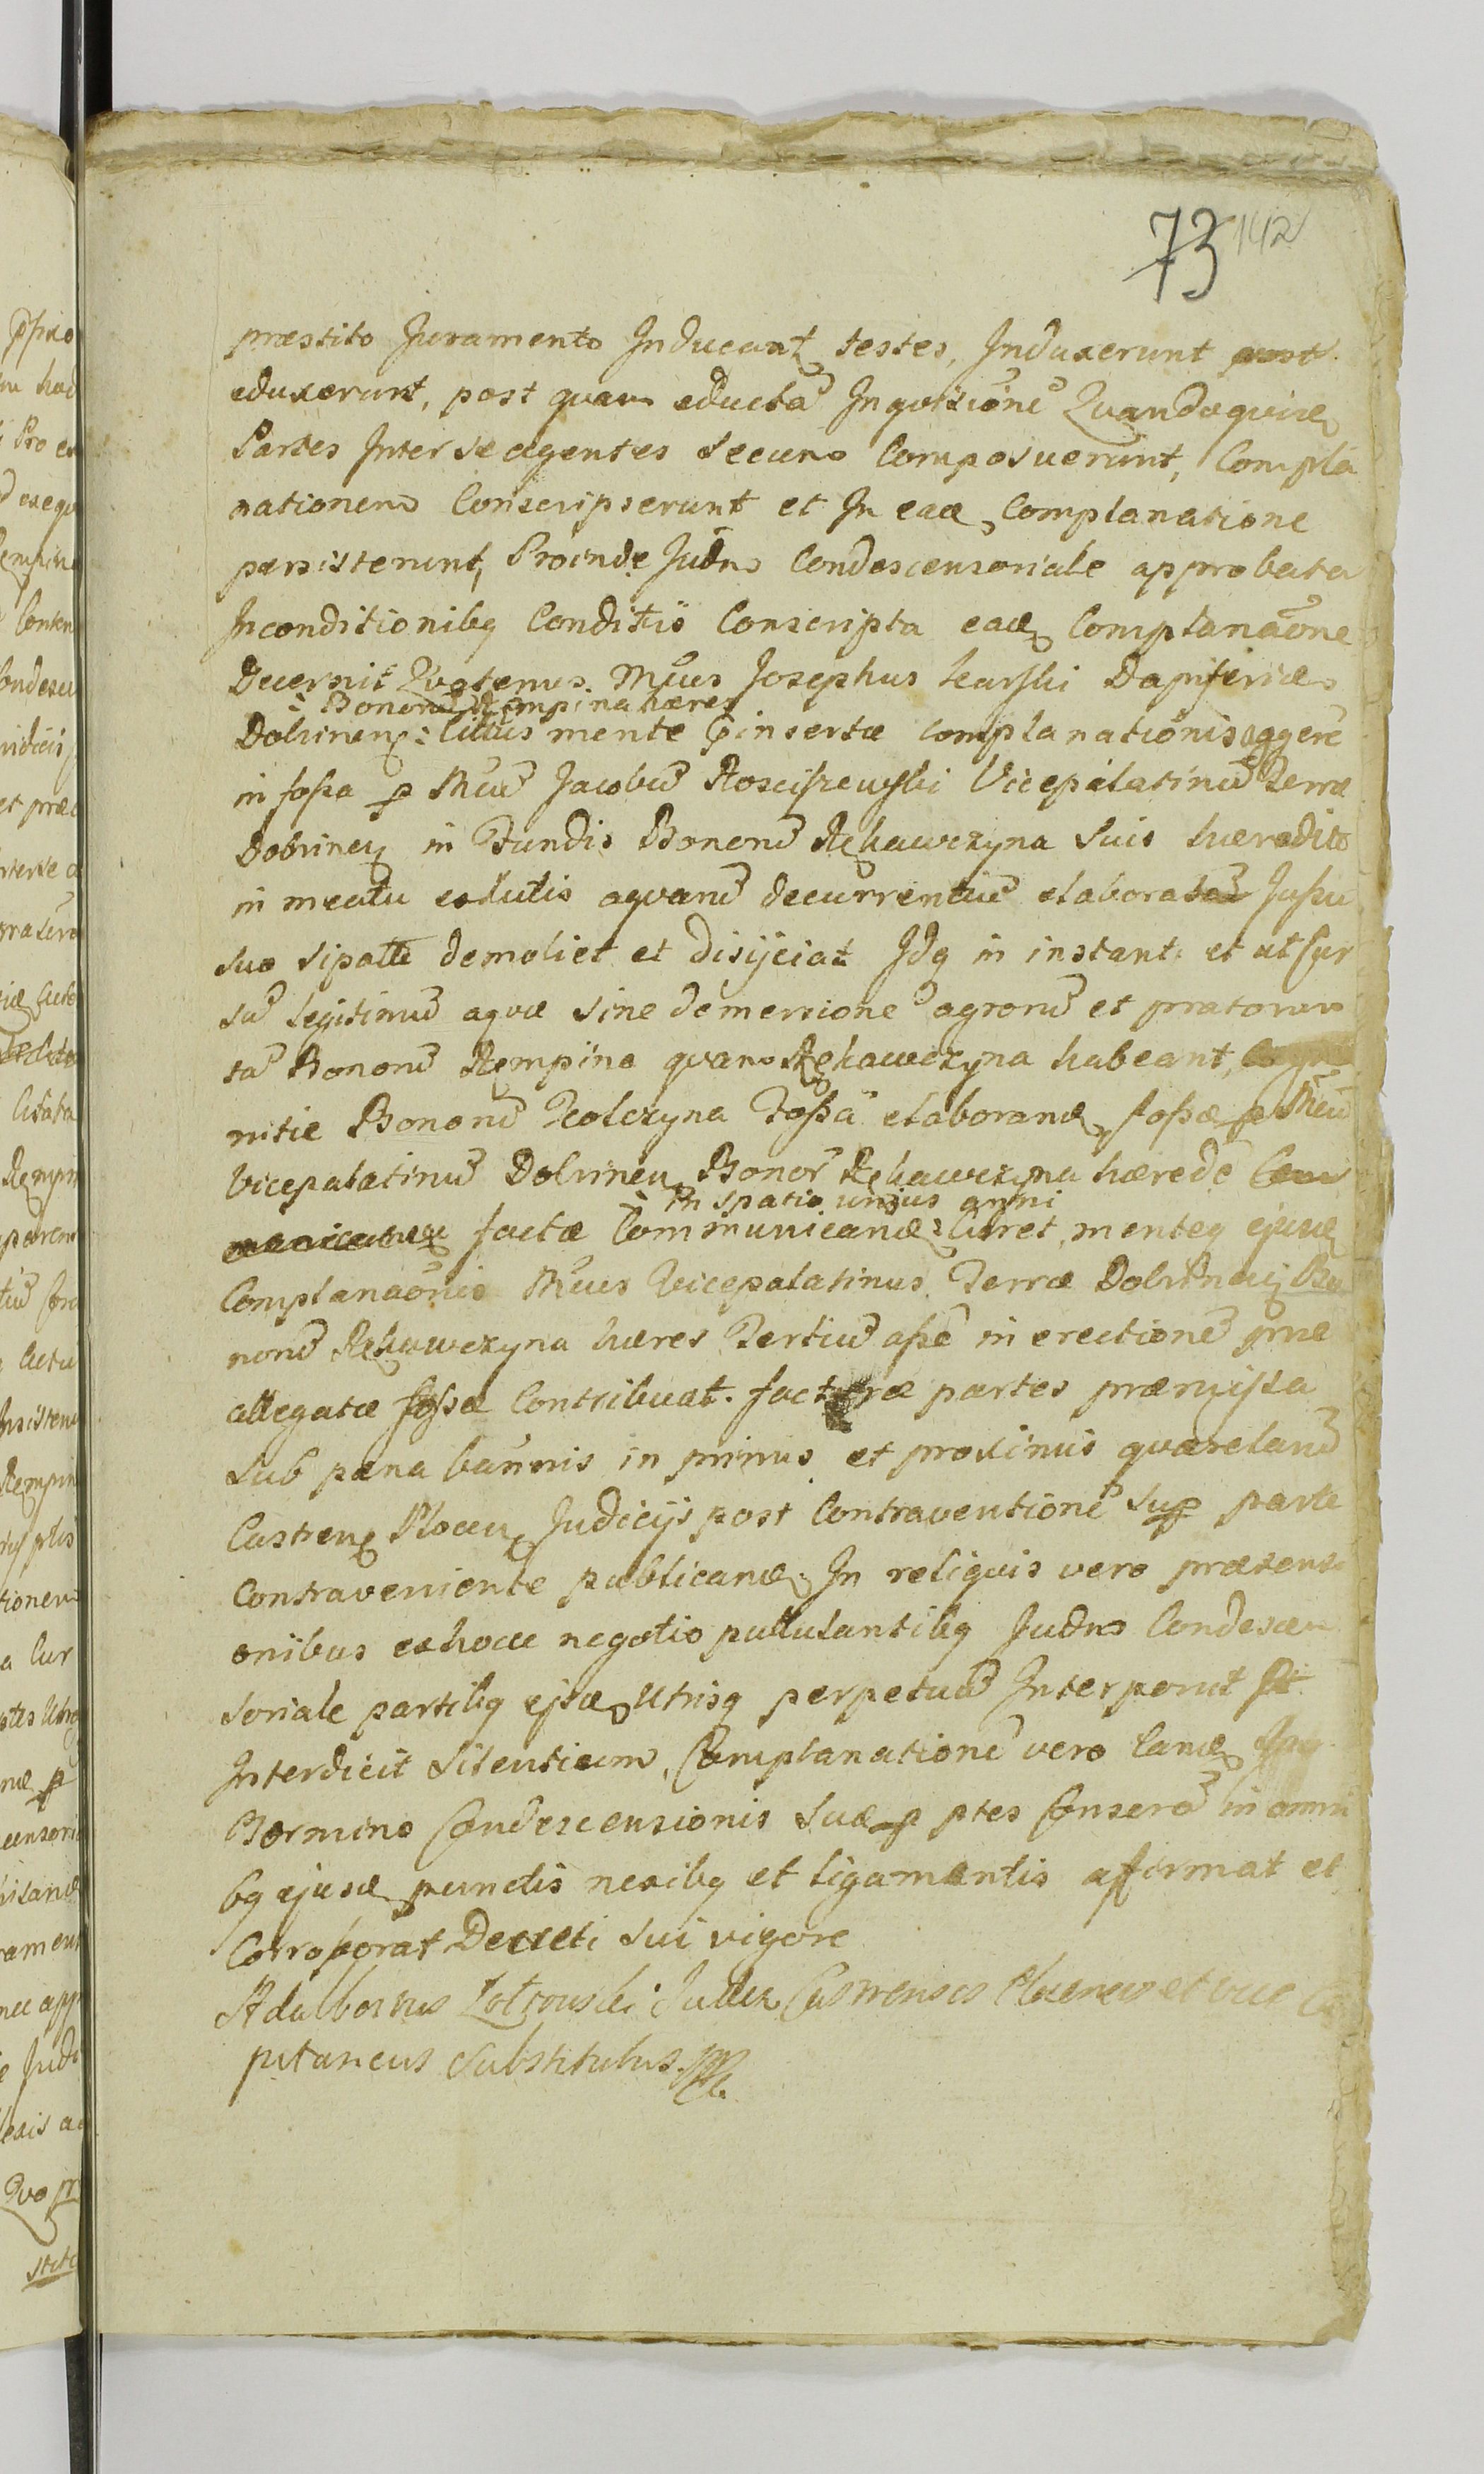 73 142
præstito Juramento Inducant testes, Induxerunt
eduxerunt, post quam eductã Inqvisitionẽ Qvandoqvidẽ
Partes Inter se agentes secum Composuerunt, Compla
nationem Conscripserunt et In eadẽ Complanatione
persisterunt, Proinde Judm Condescensoriale approbata
Inconditionibq Conditio Conscripta eadẽ Complanaõne
Decernit Qvatenus Mgcus Josephus Karski Dapiferides
: Bonorũ Rempina hæres
Dobrinen: Citãtus mente insertæ complanationis aggerẽ
in fossa p Mgcũ Jacobũ Rosciszewski Vicepalatinũ Terræ
Dobrinen in Fundis Bonorũ Rękawczyna suis hæredit
in meatu aqvarũ decurrentiũ elaboratã Jussu
suo demoliet et disijciat Idq in instanti et ut Cur
sũ legitimũ aqvæ sine demersione agrorũ et pratorum
tã Bonorũ Rempina qvam Rękawczyna habeant,
nitie Bonorũ Kolczyna Fossã elaborand fossæ p Mgcũ
Vicepalatinũ Dobrinen Bonor Rękawczyna hæredẽ
: In spatio unius anni
factæ Communicand: Curet, menteq ejusd
Complanaõnis Mgcus Vicepalatinus Terræ Dobrinen Bo
norũ Rękawczyna hæres Tertiũ assẽ in erectionẽ præ
allegatæ fossæ Contribuat. facturæ partes præmissa
sub pæna bannis in primis et proximis qværelarũ
Castren Plocen Judicijs post Contraventionẽ sup parte
Contraveniente publicand. In reliqvis vero prætensi
onibus ex hocce negotio pullulantibq Judm Condescen
soriale partibq ejsd Utrisq perpetuũ Interponit et
Interdicit silentium, Complanationẽ vero eand
Termino Condescensionis suæ p ptes Conserõ in omni
bq ejusd punctis nexibq et ligamentis affirmat et
Corroborat Decreti sui vigore
Adalbertus Zółtowski Judex Castrensis Plocensis et vice Ca
pitaneus Substitutus